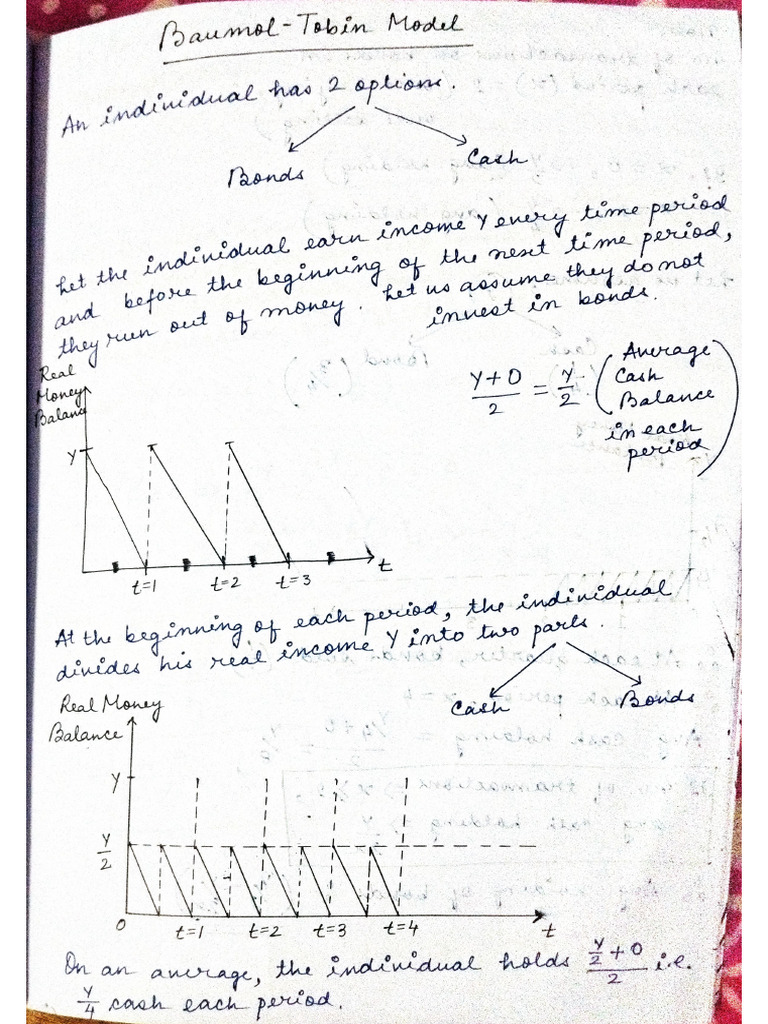 Baumol-Tobin Model
An individual has 2 options.
Bonds
Cash
Let the individual earn income Y every time period
and before the beginning of the next time period,
they run out of money. Let us assume they do not
invest in bonds.
Real
Money
Balance
Y+0/2 = Y/2 (Average
Cash
Balance
in each
period)
Y
t
t=1 t=2 t=3
At the beginning of each period, the individual
divides his real income Y into two parts.
Cash
Bonds
Real Money
Balance
Y
Y/2
0
t=1 t=2 t=3 t=4 t
On an average, the individual holds Y/2+0/2 i.e.
Y/4 cash each period.